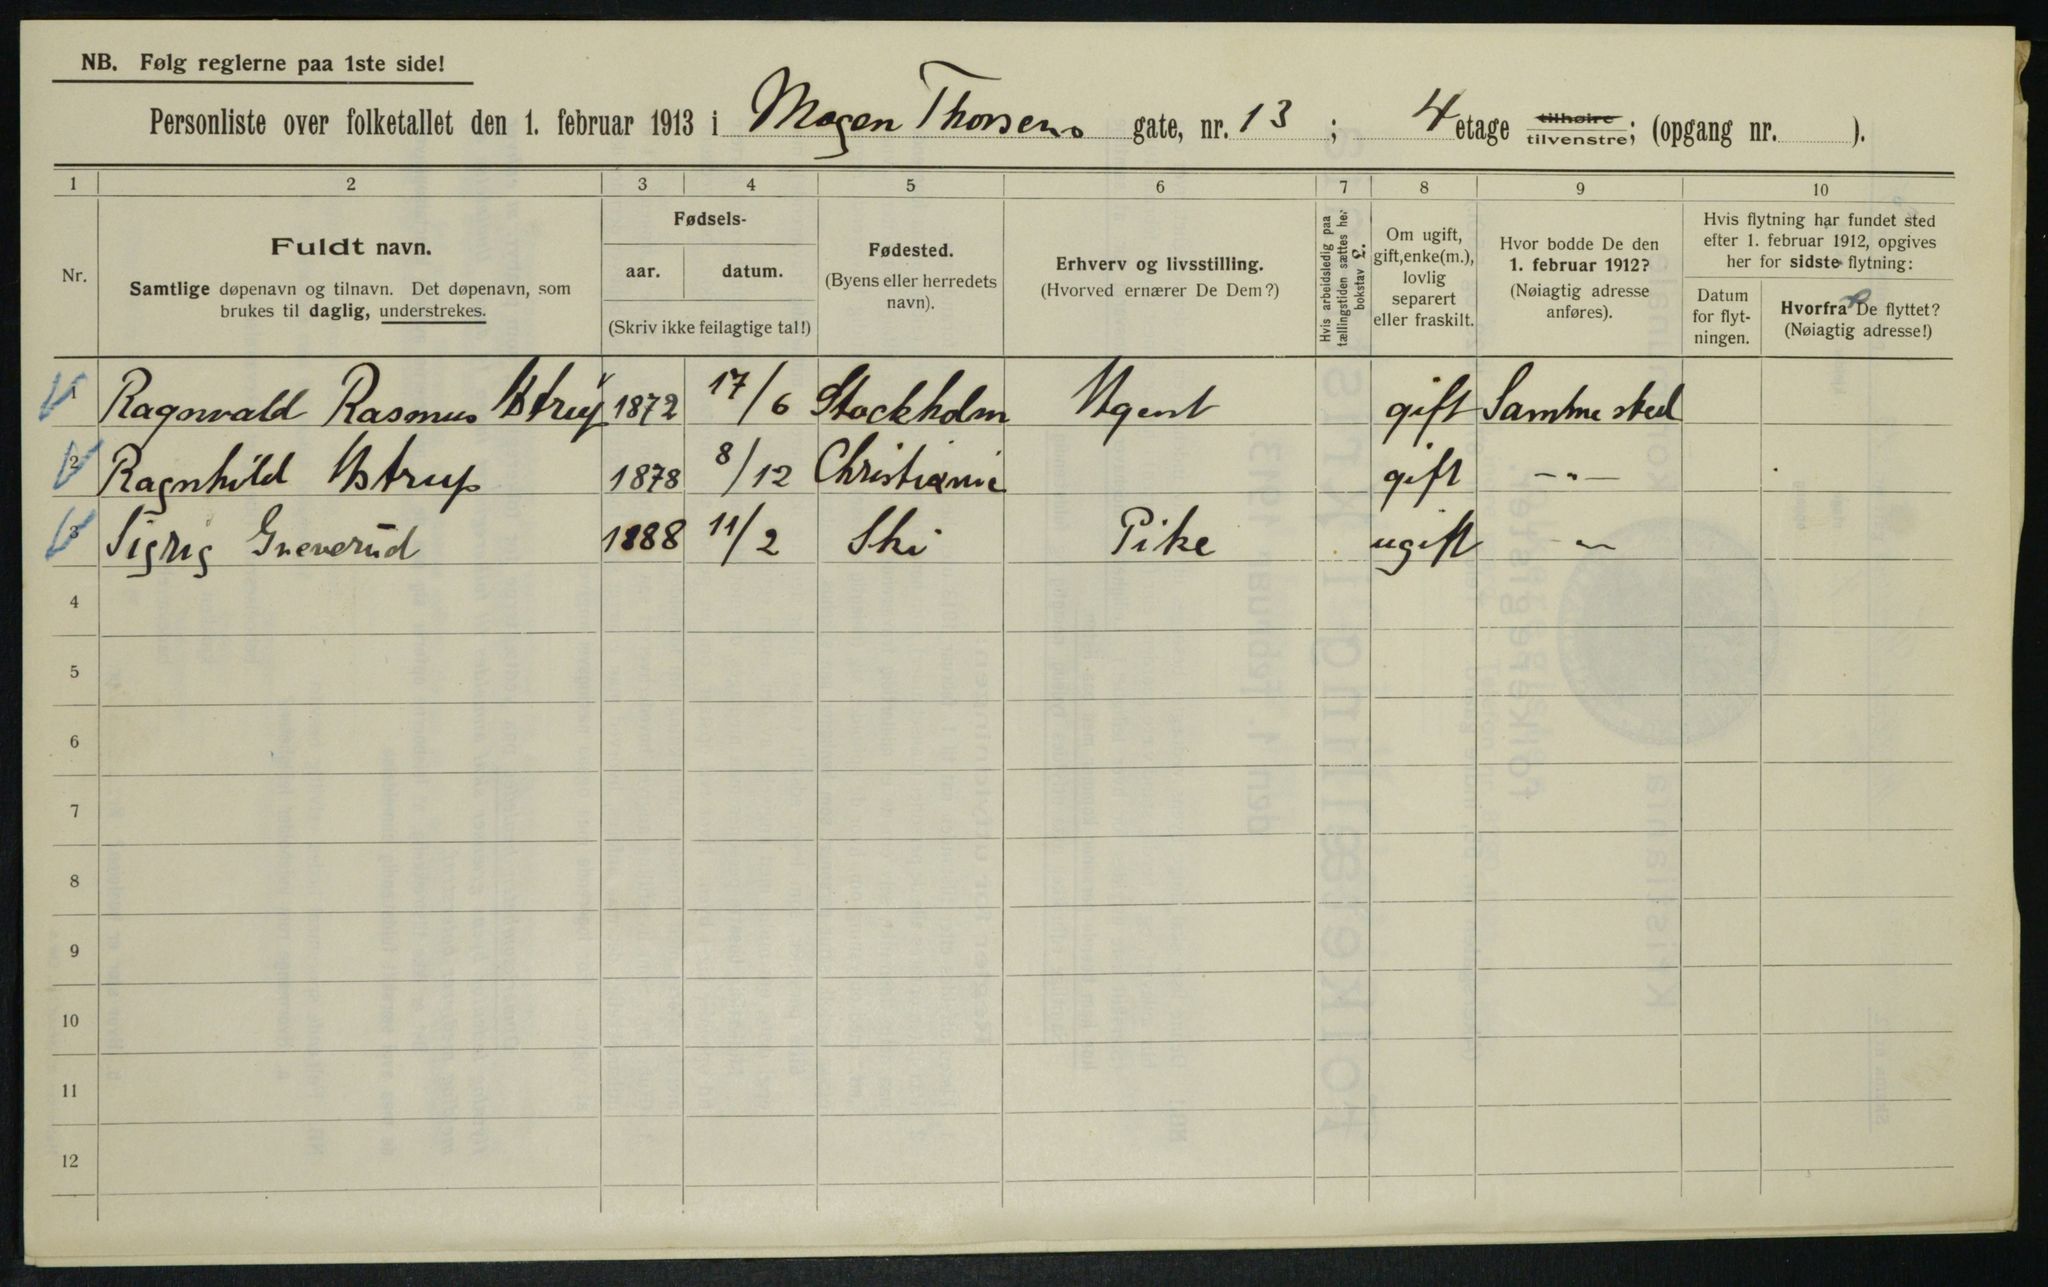 NB. Følg reglerne paa 1ste side!
Personliste over folketallet den 1. februar 1913 i Mogen Thorsens gate, nr. 13 ; 4 etage tilhøire tilvenstre; (opgang nr. ).
1 2 3 4 5 6 7 8 9 10
Nr.
Fuldt navn.
Samtlige døpenavn og tilnavn. Det døpenavn, som
brukes til daglig, understrekes.
Fødsels-
aar. datum.
(Skriv ikke feilagtige tal!)
Fødested.
(Byens eller herredets
navn).
Erhverv og livsstilling.
(Hvorved ernærer De Dem?)
Hvis arbeidsledig paa
tællingstiden sættes her
bokstav L.
Om ugift,
gift, enke(m.),
lovlig
separert
eller fraskilt.
Hvor bodde De den
1. februar 1912?
(Nøiagtig adresse
anføres).
Hvis flytning har fundet sted
efter 1. februar 1912, opgives
her for sidste flytning:
Datum
for flyt-
ningen.
Hvorfra De flyttet?
(Nøiagtig adresse!)
1 Ragnvald Rasmus Astrup 1872 17/6 Stockholm Agent gift Samme sted
2 Ragnhild Astrup 1878 8/12 Christiania gift -"-
3 Sigrig 1888 11/2 Ski Pike ugift -"-
4
5
6
7
8
9
10
11
12